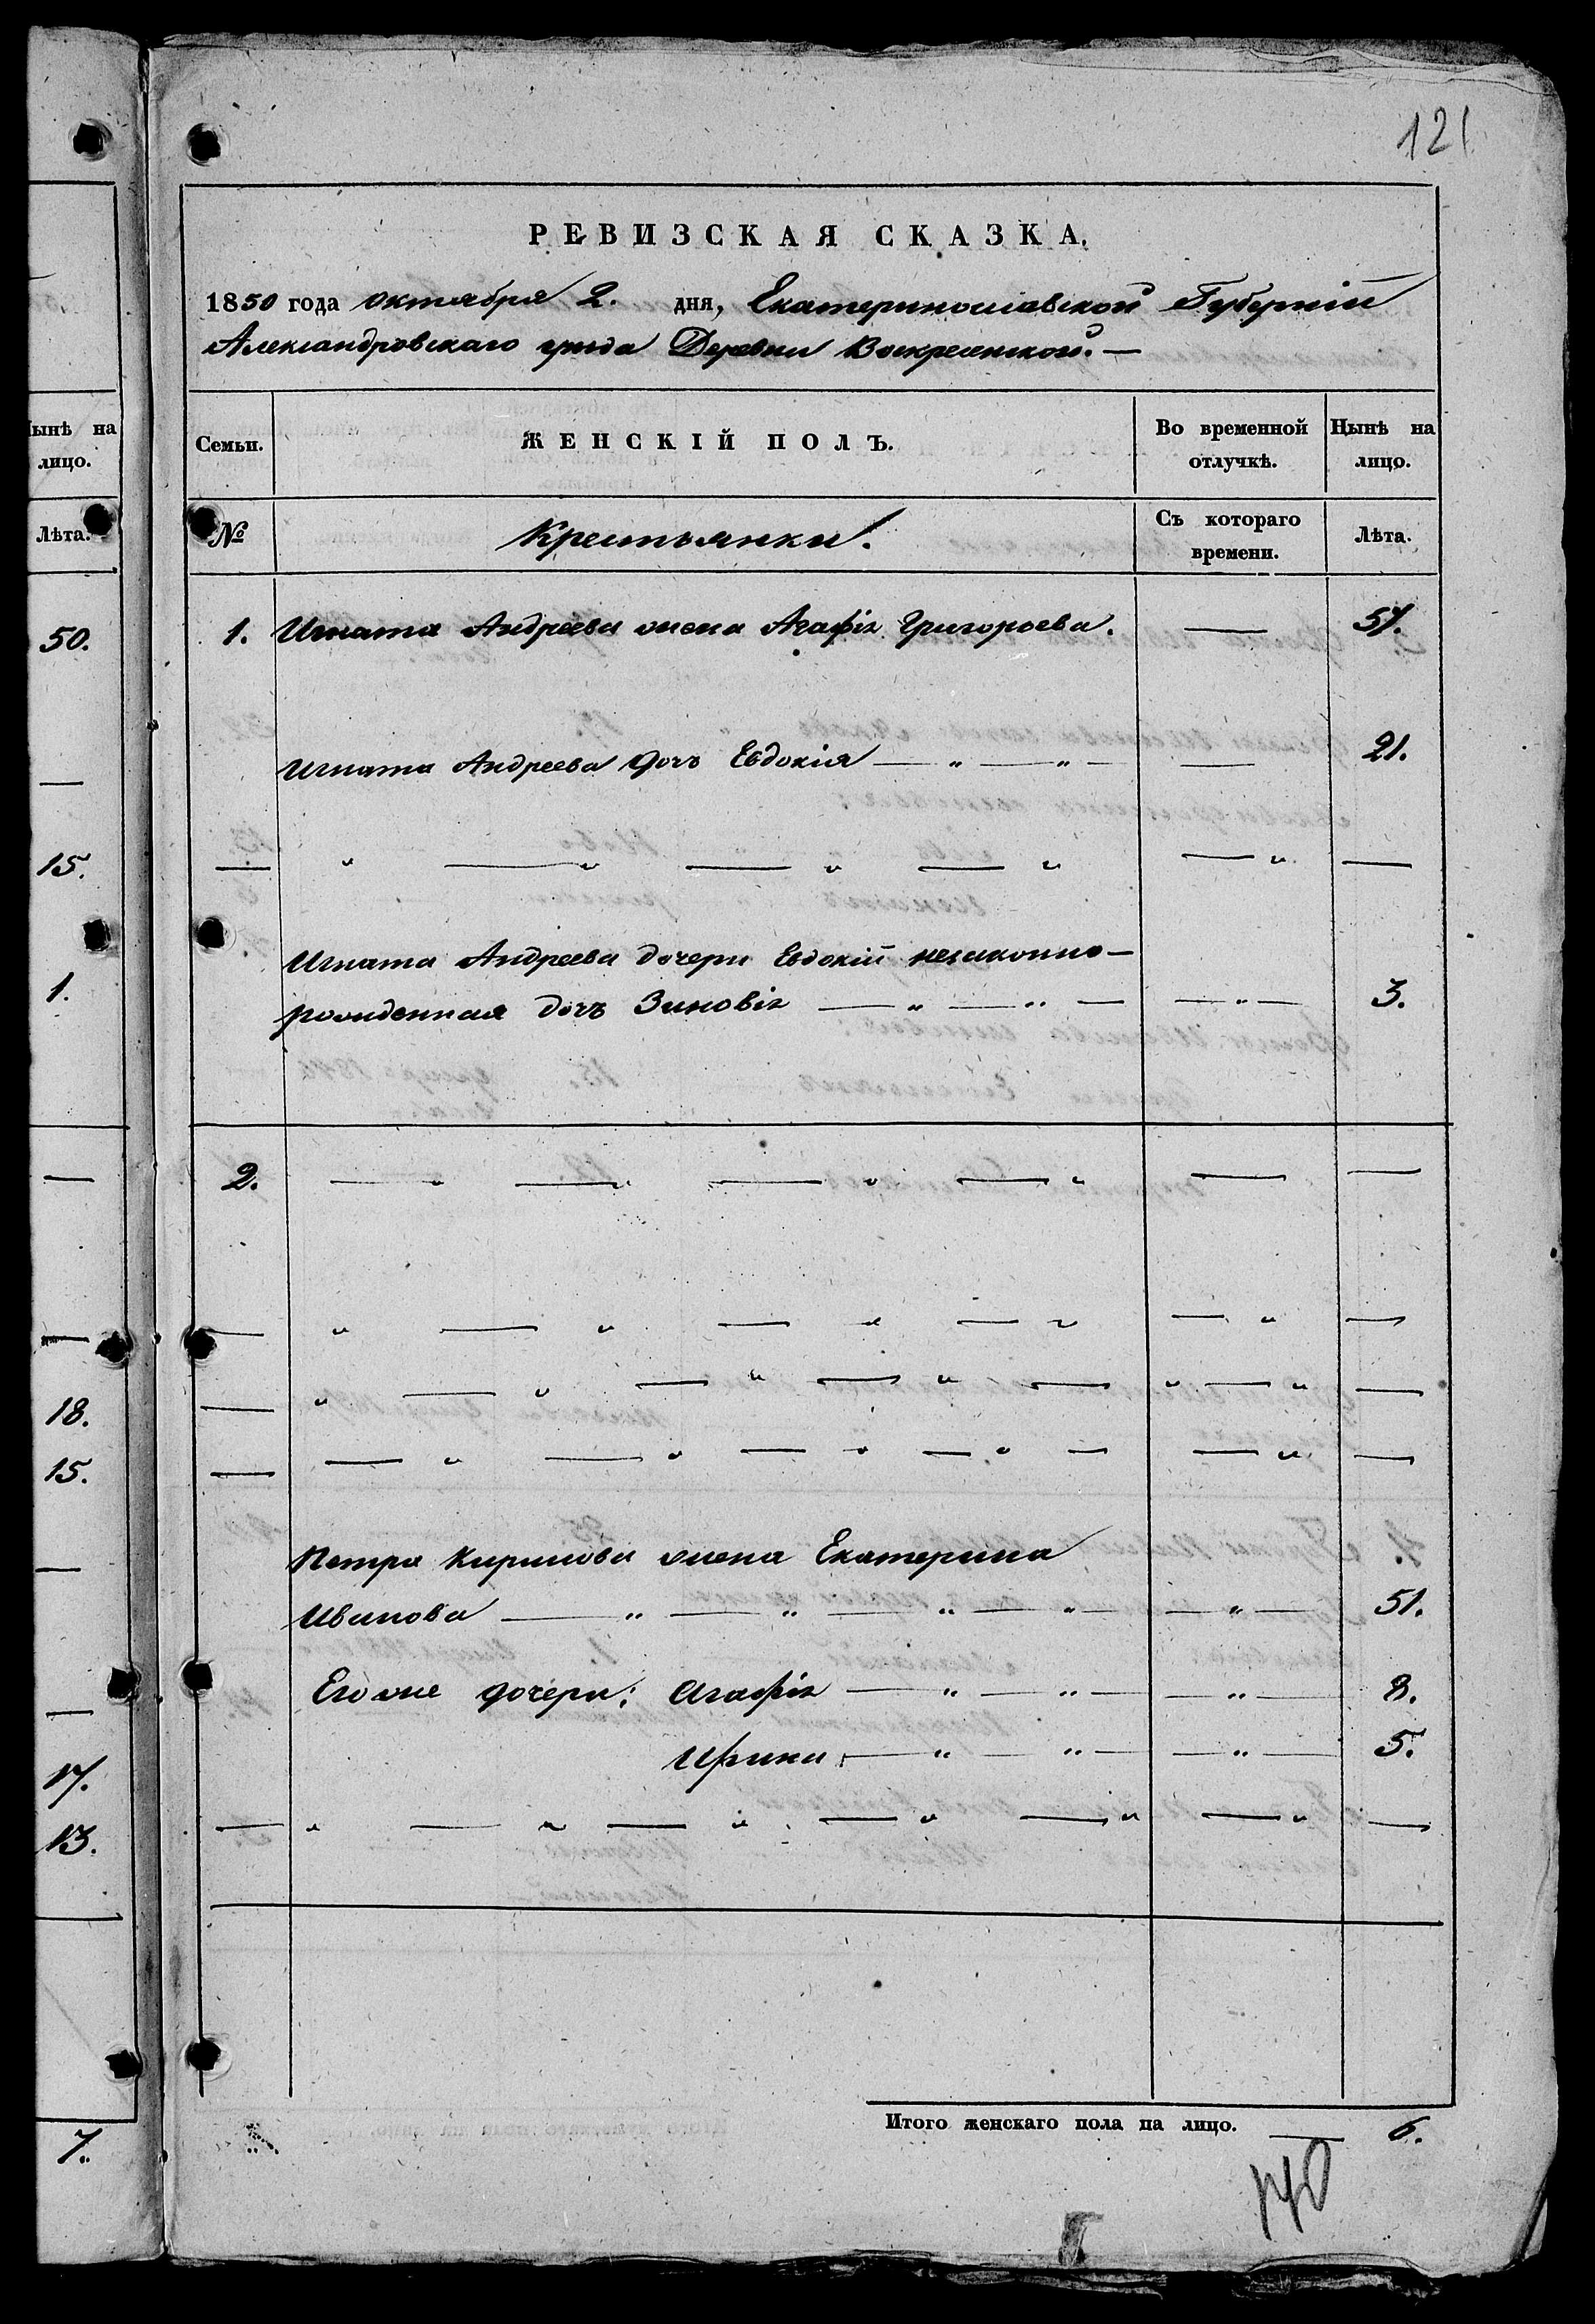 121
РЕВИЗСКАЯ СКАЗКА.
1850 года октября 2. дня, Екатеринославской Губерніи
Александровскаго уезда Деревни Воскресенской. —
ынѣ на лицо.
Семьи.
ЖЕНСКІЙ ПОЛЪ.
Во временной отлучкѣ.
Нынѣ на лицо.
Лѣта.
№
Крестьянки.
Съ котораго времени.
Лѣта.
50.
1. Игната Андреева жена Агафія Григорьева. — 57.
Игната Андреева дочь Евдокія — " — " — — 21.
15.
— " — " — " — " — " —
1.
Игната Андреева дочери Евдокіи незаконно—
рожденная дочь Зиновія — " — " — — " — 3.
—
2. — " — " — " — " — —
— " — " — " — " — " —
18.
— " — " — " — " — " — " —
15.
— — " — " — " — " — — " —
Петра Кирилова жена Екатерина
Иванова — " — " — " — " — — " — 51.
Его же дочери: Агафія — " — " — — " — 8.
17.
Ирина — " — " — — " — 5.
13.
— " — " — " — " — " — " —
7.
Итого женскаго пола на лицо. — 6.
140